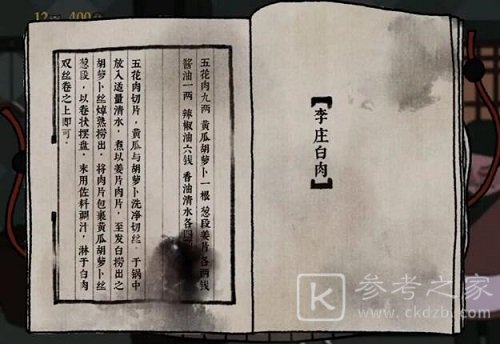 【李庄白肉】
五花肉九两 黄瓜胡萝卜一根 葱段姜片各两钱
酱油一两 辣椒油六钱 香油清水各四
五花肉切片，黄瓜与胡萝卜洗净切丝。于锅中
放入适量清水，煮以姜片肉片，至发白捞出之
胡萝卜丝焯熟捞出，将肉片包裹黄瓜胡萝卜丝
葱段，以卷状摆盘，末用佐料调汁，淋于白肉
双丝卷之上即可。
K 参考之家
www.ckdzb.com